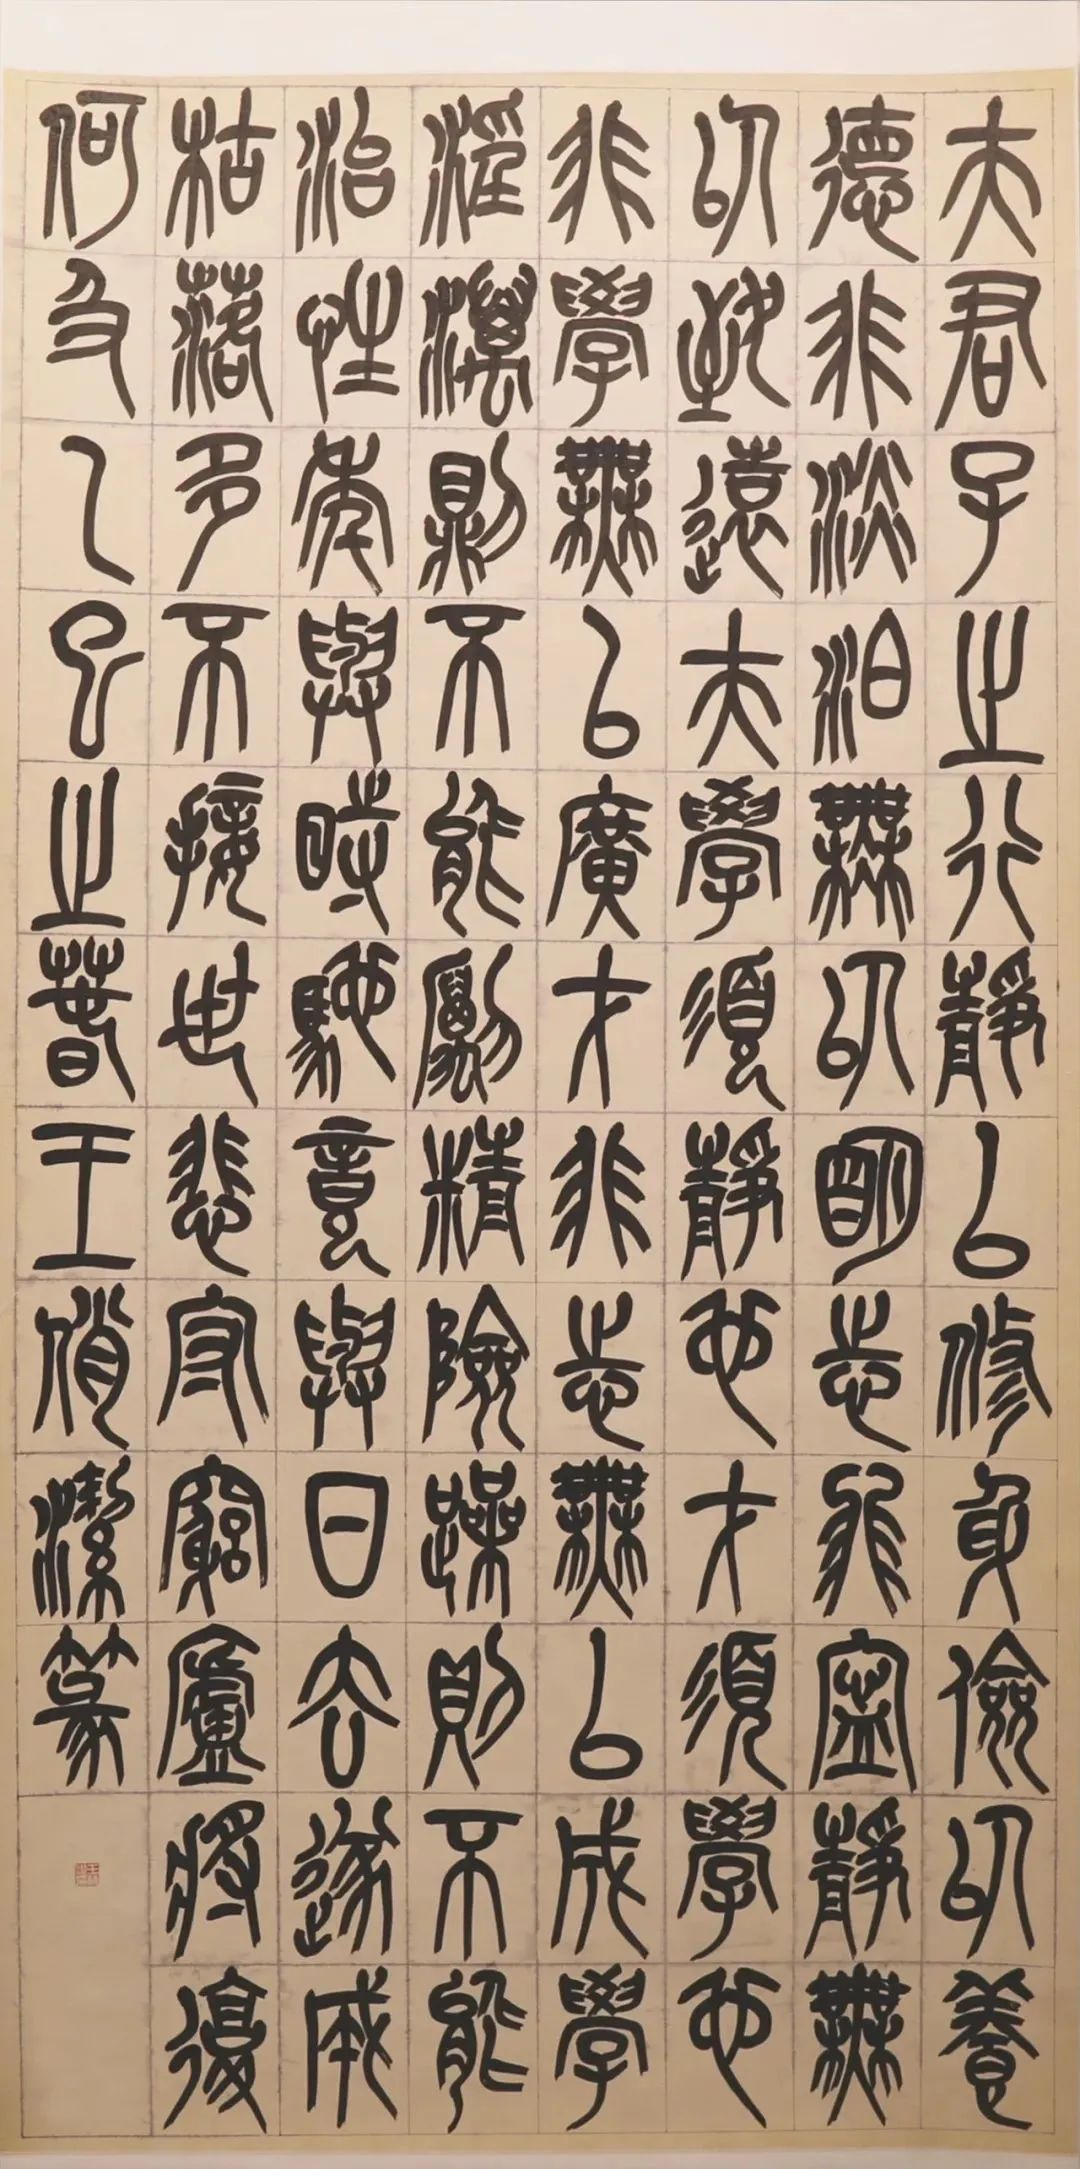 夫君子之行靜以修身儉以養
德非淡泊無以明志非寧靜無
以致遠夫學須靜也才須學也
非學無以廣才非志無以成學
淫漫則不能勵精險躁則不能
治性年與時馳意與日去遂成
枯落多不接世悲守窮廬將復
何及乙巳之春王俏潔篆